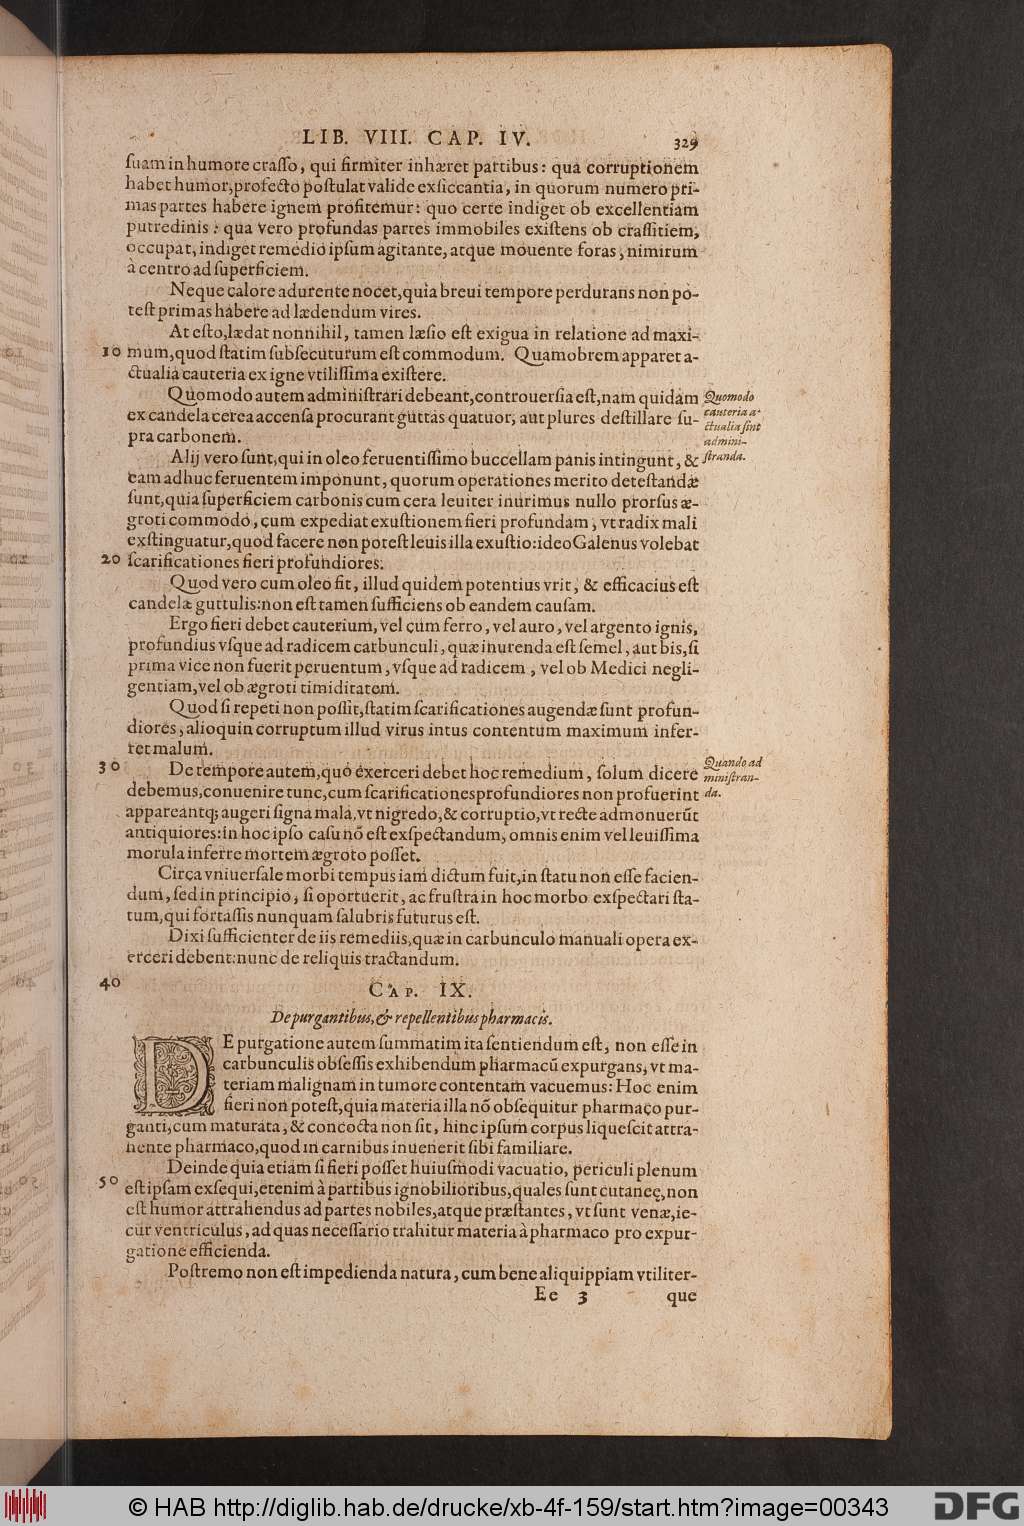 LIB. VIII. CAP. IV. 329
ſuam in humore craſſo, qui firmiter inhæret partibus: qua corruptionem
habet humor, profecto poſtulat valide exſiccantia, in quorum numero pri-
mas partes habere ignem profitemur: quo certe indiget ob excellentiam
putredinis: qua vero profundas partes immobiles exiſtens ob craſſitiem,
occupat, indiget remedio ipſum agitante, atque mouente foras, nimirum
à centro ad ſuperficiem.
Neque calore adurente nocet, quia breui tempore perdurans non po-
teſt primas habere ad lædendum vires.
At eſto, lædat nonnihil, tamen læſio eſt exigua in relatione ad maxi-
10 mum, quod ſtatim ſubſecuturum eſt commodum. Quamobrem apparet a-
ctualia cauteria ex igne vtiliſſima exiſtere.
Quomodo autem adminiſtrari debeant, controuerſia eſt, nam quidam
ex candela cerea accenſa procurant guttas quatuor, aut plures deſtillare ſu-
pra carbonem.
Quomodo
cauteria a-
ctualia ſint
admini-
ſtranda.
Alij vero ſunt, qui in oleo feruentiſſimo buccellam panis intingunt, &
eam adhuc feruentem imponunt, quorum operationes merito deteſtandæ
ſunt, quia ſuperficiem carbonis cum cera leuiter inurimus nullo prorſus æ-
groti commodo, cum expediat exuſtionem fieri profundam, vt radix mali
exſtinguatur, quod facere non poteſt leuis illa exuſtio: ideo Galenus volebat
20 ſcarificationes fieri profundiores.
Quod vero cum oleo fit, illud quidem potentius vrit, & efficacius eſt
candelæ guttulis: non eſt tamen ſufficiens ob eandem cauſam.
Ergo fieri debet cauterium, vel cum ferro, vel auro, vel argento ignis,
profundius vſque ad radicem carbunculi, quæ inurenda eſt ſemel, aut bis, ſi
prima vice non fuerit peruentum, vſque ad radicem, vel ob Medici negli-
gentiam, vel ob ægroti timiditatem.
Quod ſi repeti non poſſit, ſtatim ſcarificationes augendæ ſunt profun-
diores, alioquin corruptum illud virus intus contentum maximum infer-
ret malum.
30 De tempore autem, quo exerceri debet hoc remedium, ſolum dicere
debemus, conuenire tunc, cum ſcarificationes profundiores non profuerint
appareantq; augeri ſigna mala, vt nigredo, & corruptio, vt recte admonuerūt
antiquiores: in hoc ipſo caſu nō eſt exſpectandum, omnis enim vel leuiſſima
morula inferre mortem ægroto poſſet.
Quando ad
miniſtran-
da.
Circa vniuerſale morbi tempus iam dictum fuit, in ſtatu non eſſe facien-
dum, ſed in principio, ſi oportuerit, ac fruſtra in hoc morbo exſpectari ſta-
tum, qui fortaſſis nunquam ſalubris futurus eſt.
Dixi ſufficienter de iis remediis, quæ in carbunculo manuali opera ex-
erceri debent: nunc de reliquis tractandum.
40 CAP. IX.
De purgantibus, & repellentibus pharmacis.
DE purgatione autem ſummatim ita ſentiendum eſt, non eſſe in
carbunculis obſeſſis exhibendum pharmacū expurgans, vt ma-
teriam malignam in tumore contentam vacuemus: Hoc enim
fieri non poteſt, quia materia illa nō obſequitur pharmaco pur-
ganti, cum maturata, & concocta non ſit, hinc ipſum corpus liqueſcit attra-
hente pharmaco, quod in carnibus inuenerit ſibi familiare.
Deinde quia etiam ſi fieri poſſet huiuſmodi vacuatio, periculi plenum
50 eſt ipſam exſequi, etenim à partibus ignobilioribus, quales ſunt cutaneę, non
eſt humor attrahendus ad partes nobiles, atque præſtantes, vt ſunt venæ, ie-
cur ventriculus, ad quas neceſſario trahitur materia à pharmaco pro expur-
gatione efficienda.
Poſtremo non eſt impedienda natura, cum bene aliquippiam vtiliter-
Ee 3 que
© HAB http://diglib.hab.de/drucke/xb-4f-159/start.htm?image=00343
DFG